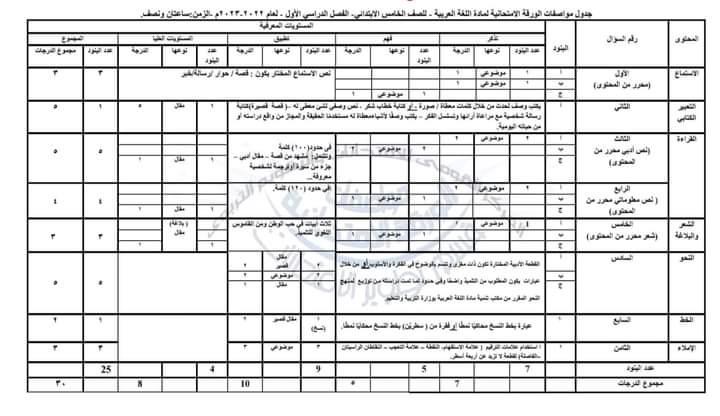 جدول مواصفات الورقة الامتحانية لمادة اللغة العربية - للصف الخامس الابتدائي- الفصل الدراسي الأول - لعام ٢٠٢٢-٢٠٢٣م -الزمن:ساعتان ونصف.
المستويات المعرفية
المحتوى رقم السؤال البنود تذكر فهم تطبيق المستويات العليا المجموع
عدد البنود نوعها الدرجة عدد البنود نوعها الدرجة عدد البنود نوعها الدرجة عدد البنود نوعها الدرجة عدد البنود مجموع الدرجات
الاستماع الأول (محرر من المحتوى)
أ ١ موضوعي ١
ب ١ موضوعي ١
ج ١ موضوعي ١
نص الاستماع المختار يكون : قصة / حوار /رسالة/خبر
٣ ٣
التعبير الكتابي الثاني ١
يكتب وصف لحدث من خلال كلمات معطاة / صورة - أو كتابة خطاب شكر - نص وصفي لشئ معطى له -( قصة قصيرة)كتابة
رسالة شخصية مع مراعاة أركانها وتسلسل الفكر - يكتب وصفًا لأشياء معطاة له مستخدمًا الحقيقة والمجاز من واقع دراسته أو
من حياته اليومية.
١ مقال ٥ ١ ٥
القراءة الثالث (نص أدبي محرر من المحتوى)
أ ٢ موضوعي ٢
ب ٢ موضوعي ٢
ج ١ مقال ١
في حدود(١٠٠) كلمة
وتشمل: مشهد من قصة - مقال أدبي -
جزء من سيرة أو ترجمة لشخصية
معروفة..
٥ ٥
الرابع ( نص معلوماتي محرر من المحتوى)
أ ٢ موضوعي ٢
ب ١ موضوعي ١
ج ١ مقال ١
في حدود (١٢٠) كلمة.
٤ ٤
الشعر والبلاغة الخامس (شعر محرر من المحتوى)
أ ١ موضوعي ١
ب ١ موضوعي ١
ج ١ مقال (بلاغة) ١
ثلاث أبيات في حب الوطن ومن القاموس
اللغوي للتلميذ.
٣ ٣
النحو السادس
أ ٢ مقال قصير ٢
ب ٢ موضوعي ٢
ج ١ مقال
القطعة الأدبية المختارة تكون ذات مغزى وتتسم بالوضوح في الفكرة والأسلوب أو من خلال
عبارات يكون المطلوب من التلميذ واضحًا وفي حدود ما تمت دراسته من توزيع المنهج
النحو المقرر من مكتب تنمية مادة اللغة العربية بوزارة التربية والتعليم
٥
الخط السابع ١
عبارة بخط النسخ محاكيًا نمطًا أو فقرة من ( سطرين) بخط النسخ محاكيًا نمطًا.
١ مقال قصير (نسخ) ٢ ١ ٢
الإملاء الثامن ١
استخدام علامات الترقيم ( علامة الاستفهام، النقطة - علامة التعجب - النقطتان الرأسيتان
-الفاصلة) لقطعة لا تزيد عن أربعة أسطر.
٣ موضوعي ٣ ٣ ٣
عدد البنود 7 5 9 4 25
مجموع الدرجات 7 ٥ 10 8 ٣٠